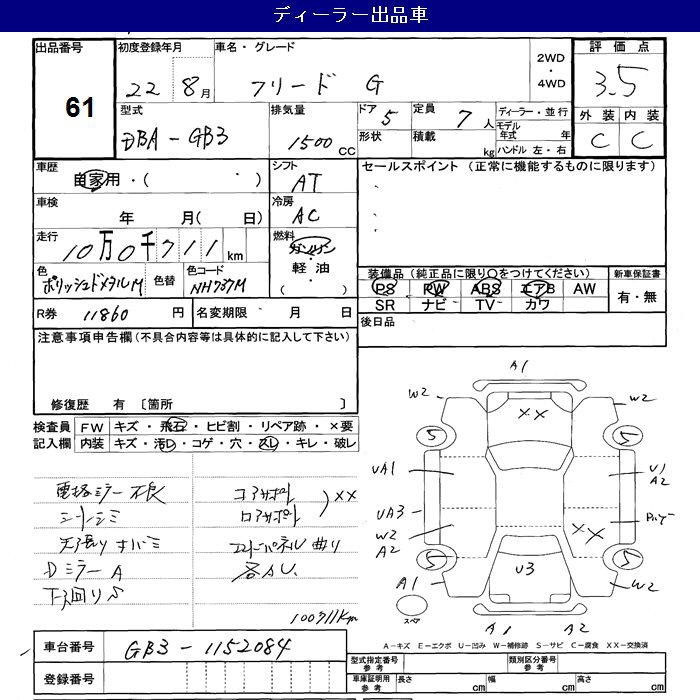 ディーラー出品車
出品番号 61
初度登録年月 22年 8月
車名・グレード フリード G
2WD ・ 4WD
評価点 3.5
外装 C 内装 C
型式 DBA-GB3
排気量 1500 CC
ドア 5
形状
定員 7 人
積載 kg
ディーラー・並行
モデル年式 年
ハンドル 左・右
車歴 自家用・( )
シフト AT
セールスポイント (正常に機能するものに限ります)
車検 年 月( 日)
冷房 AC
走行 10万0千711 km
燃料 ガソリン・軽油 ( )
色 ポリッシュドメタルM
色替
色コード NH737M
装備品(純正品に限り○をつけてください)
PS PW ABS エアB AW
SR ナビ TV カワ
新車保証書 有・無
R券 11860 円
名変期限 月 日
後日品
注意事項申告欄(不具合内容等は具体的に記入して下さい)
修復歴 有 〔箇所 〕
検査員記入欄
FW キズ・飛石・ヒビ割・リペア跡・×要
内装 キズ・汚レ・コゲ・穴・スレ・キレ・破レ
電格ミラー不良
シートシミ
天張り
Dミラー A
下廻りS
コアサポート
ロアサポート
)××
エンドパネル曲り
各AU.
100711Km
A1
W2 W2
××
5 5
UA1
U1
A2
UA3
W2
A2
××
5 5
U3
A1
W2
スペア
A1 A2
A-キズ E-エクボ U-凹み W-補修跡 S-サビ C-腐食 XX-交換済
車台番号 GB3-1152084
登録番号
型式指定番号 参考
類別区分番号 参考
車庫証明用 参考
長さ cm 幅 cm 高さ cm